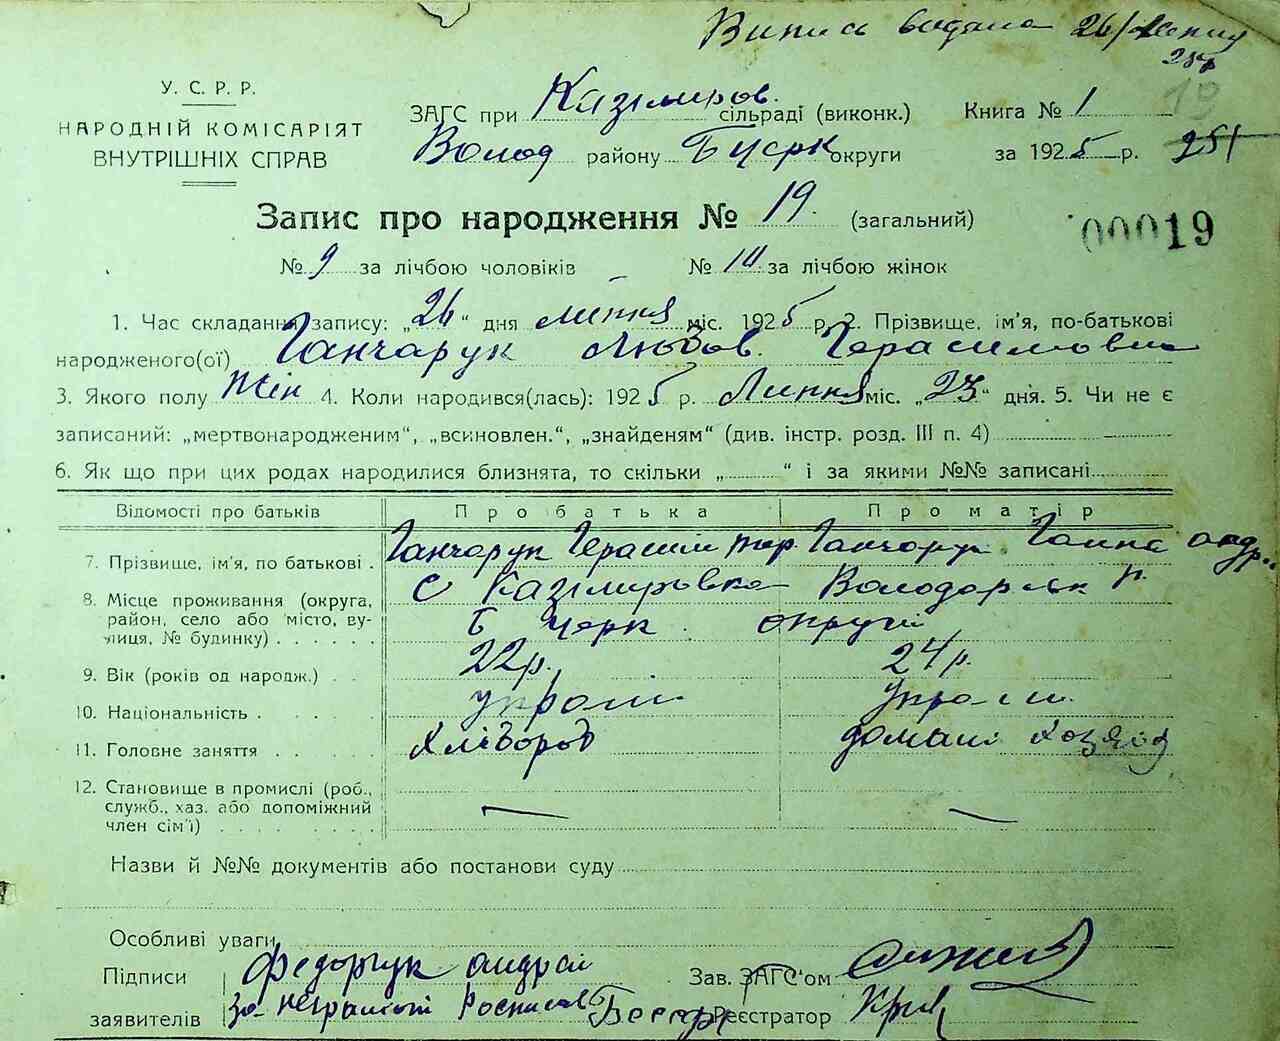 Випись видана 26/
У. С. Р. Р.
НАРОДНІЙ КОМІСАРІЯТ
ВНУТРІШНІХ СПРАВ
ЗАГС при Казімиров. сільраді (виконк.) Книга № 1
Волод району Б Церк округи за 1925 р.
19
251
Запис про народження № 19. (загальний)
00019
№ 9 за лічбою чоловіків № 10 за лічбою жінок
1. Час складання запису: „26“ дня липня міс. 1925 р. 2. Прізвище, ім'я, по-батькові
народженого(ої) Ганчарук Любов. Герасимовна
3. Якого полу Жін 4. Коли народився(лась): 1925 р. Липня міс. „23“ дня. 5. Чи не є
записаний: „мертвонародженим“, „всиновлен.“, „знайденям“ (див. інстр. розд. III п. 4)
6. Як що при цих родах народилися близнята, то скільки „ “ і за якими №№ записані
Відомості про батьків Про батька Про матір
7. Прізвище, ім'я, по батькові . Ганчарук Герасим Ганчарук Ганна андр..
8. Місце проживання (округа, район, село або місто, вулиця, № будинку) с Казімировка Володарськ р.
Б Церк округи
9. Вік (років од народж.) . . 22р. 24р.
10. Національність . україн україн.
11. Головне заняття . . Хлібороб домашн хозяйз
12. Становище в промислі (роб.,
служб., хаз. або допоміжний
член сім'ї) — —
Назви й №№ документів або постанови суду
Особливі уваги
Підписи заявителів Федорчук андрій Зав. ЗАГС'ом
за неграмотн росписався Реєстратор